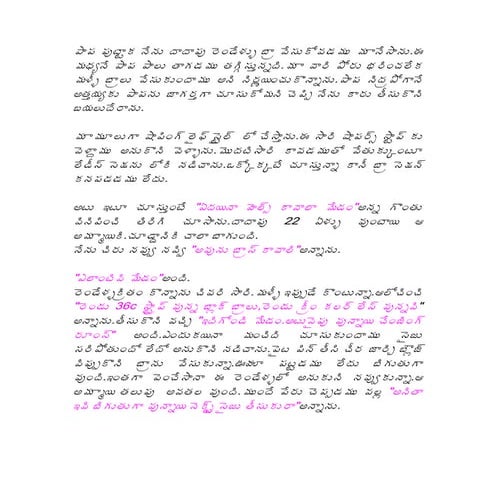 పాప పుట్టాక నేను దాదాపు రెండేళ్ళు బ్రా వేసుకోవడము మానేసాను.ఈ
మధ్యనే పాప పాలు తాగడము తగ్గిస్తున్నది. మా వారి పోరు భరించలేక
మళ్ళీ బ్రాలు వేసుకుందాము అని నిర్ణయించుకొన్నాను.పాప నిద్రపోగానే
అత్తయ్యకు పాపను జాగర్తగా చూసుకోమని చెప్పి నేను కారు తీసుకొని
బయలుదేరాను.
మామూలుగా షాపింగ్ లైఫ్ స్టైల్ లో చేస్తాను.ఈ సారి షాపర్స్ స్టాప్ కు
వెళ్దాము అనుకొని వెళ్ళాను.మొదటిసారి కావడముతో వేతుక్కుంటూ
లేడీస్ సెక్షను లోకి నడిచాను.ఒక్కోక్కటే చూస్తున్నా కానీ బ్రా సెక్షన్
కనపడడము లేదు.
అటు ఇటూ చూస్తుంటే "ఏదయినా హెల్ప్ కావాలా మేడం"అన్న గొంతు
వినిపించి తిరిగి చూసాను.దాదాపు 22 ఏళ్ళు వుంటాయి ఆ
అమ్మాయికి.చూడ్డానికి చాలా బాగుంది.
నేను చిరు నవ్వు నవ్వి "అవును బ్రాస్ కావాలి"అన్నాను.
"ఏలాంటివి మేడం"అంది.
రెండేళ్ళక్రితం కొన్నాను చివరి సారి.మళ్ళీ ఇప్పుడే కొంటున్నా.ఆలోచించి
"రెండు 36c స్ట్రాప్ వున్న బ్లాక్ బ్రాలు,రెండు క్రీం కలర్ లేస్ వున్నవి"
అన్నాను.తీసుకొని వచ్చి "ఇవిగోండి మేడం.అటువైపు వున్నాయి చేంజింగ్
రూంస్" అంది.ఎందుకయినా మంచిది చూసుకుందాము సైజు
సరిపోతుందో లేదో అనుకొని నడిచాను.పైట పిన్ తీసి చీర జార్చి బ్లౌజ్
విప్పుకొని బ్రాను వేసుకున్నా.ఈజీగా పట్టడము లేదు బిగుతుగా
వుంది.ఇంతగా పెంచేసానా ఈ రెండేళ్ళలో అనుకుని నవ్వుకున్నా.ఆ
అమ్మాయి తలుపు అవతల వుంది.ముందే పేరు చెప్పడము వల్ల "అనితా
ఇవి బిగుతుగా వున్నాయి నెక్స్ట్ సైజు తీసుకురా"అన్నాను.